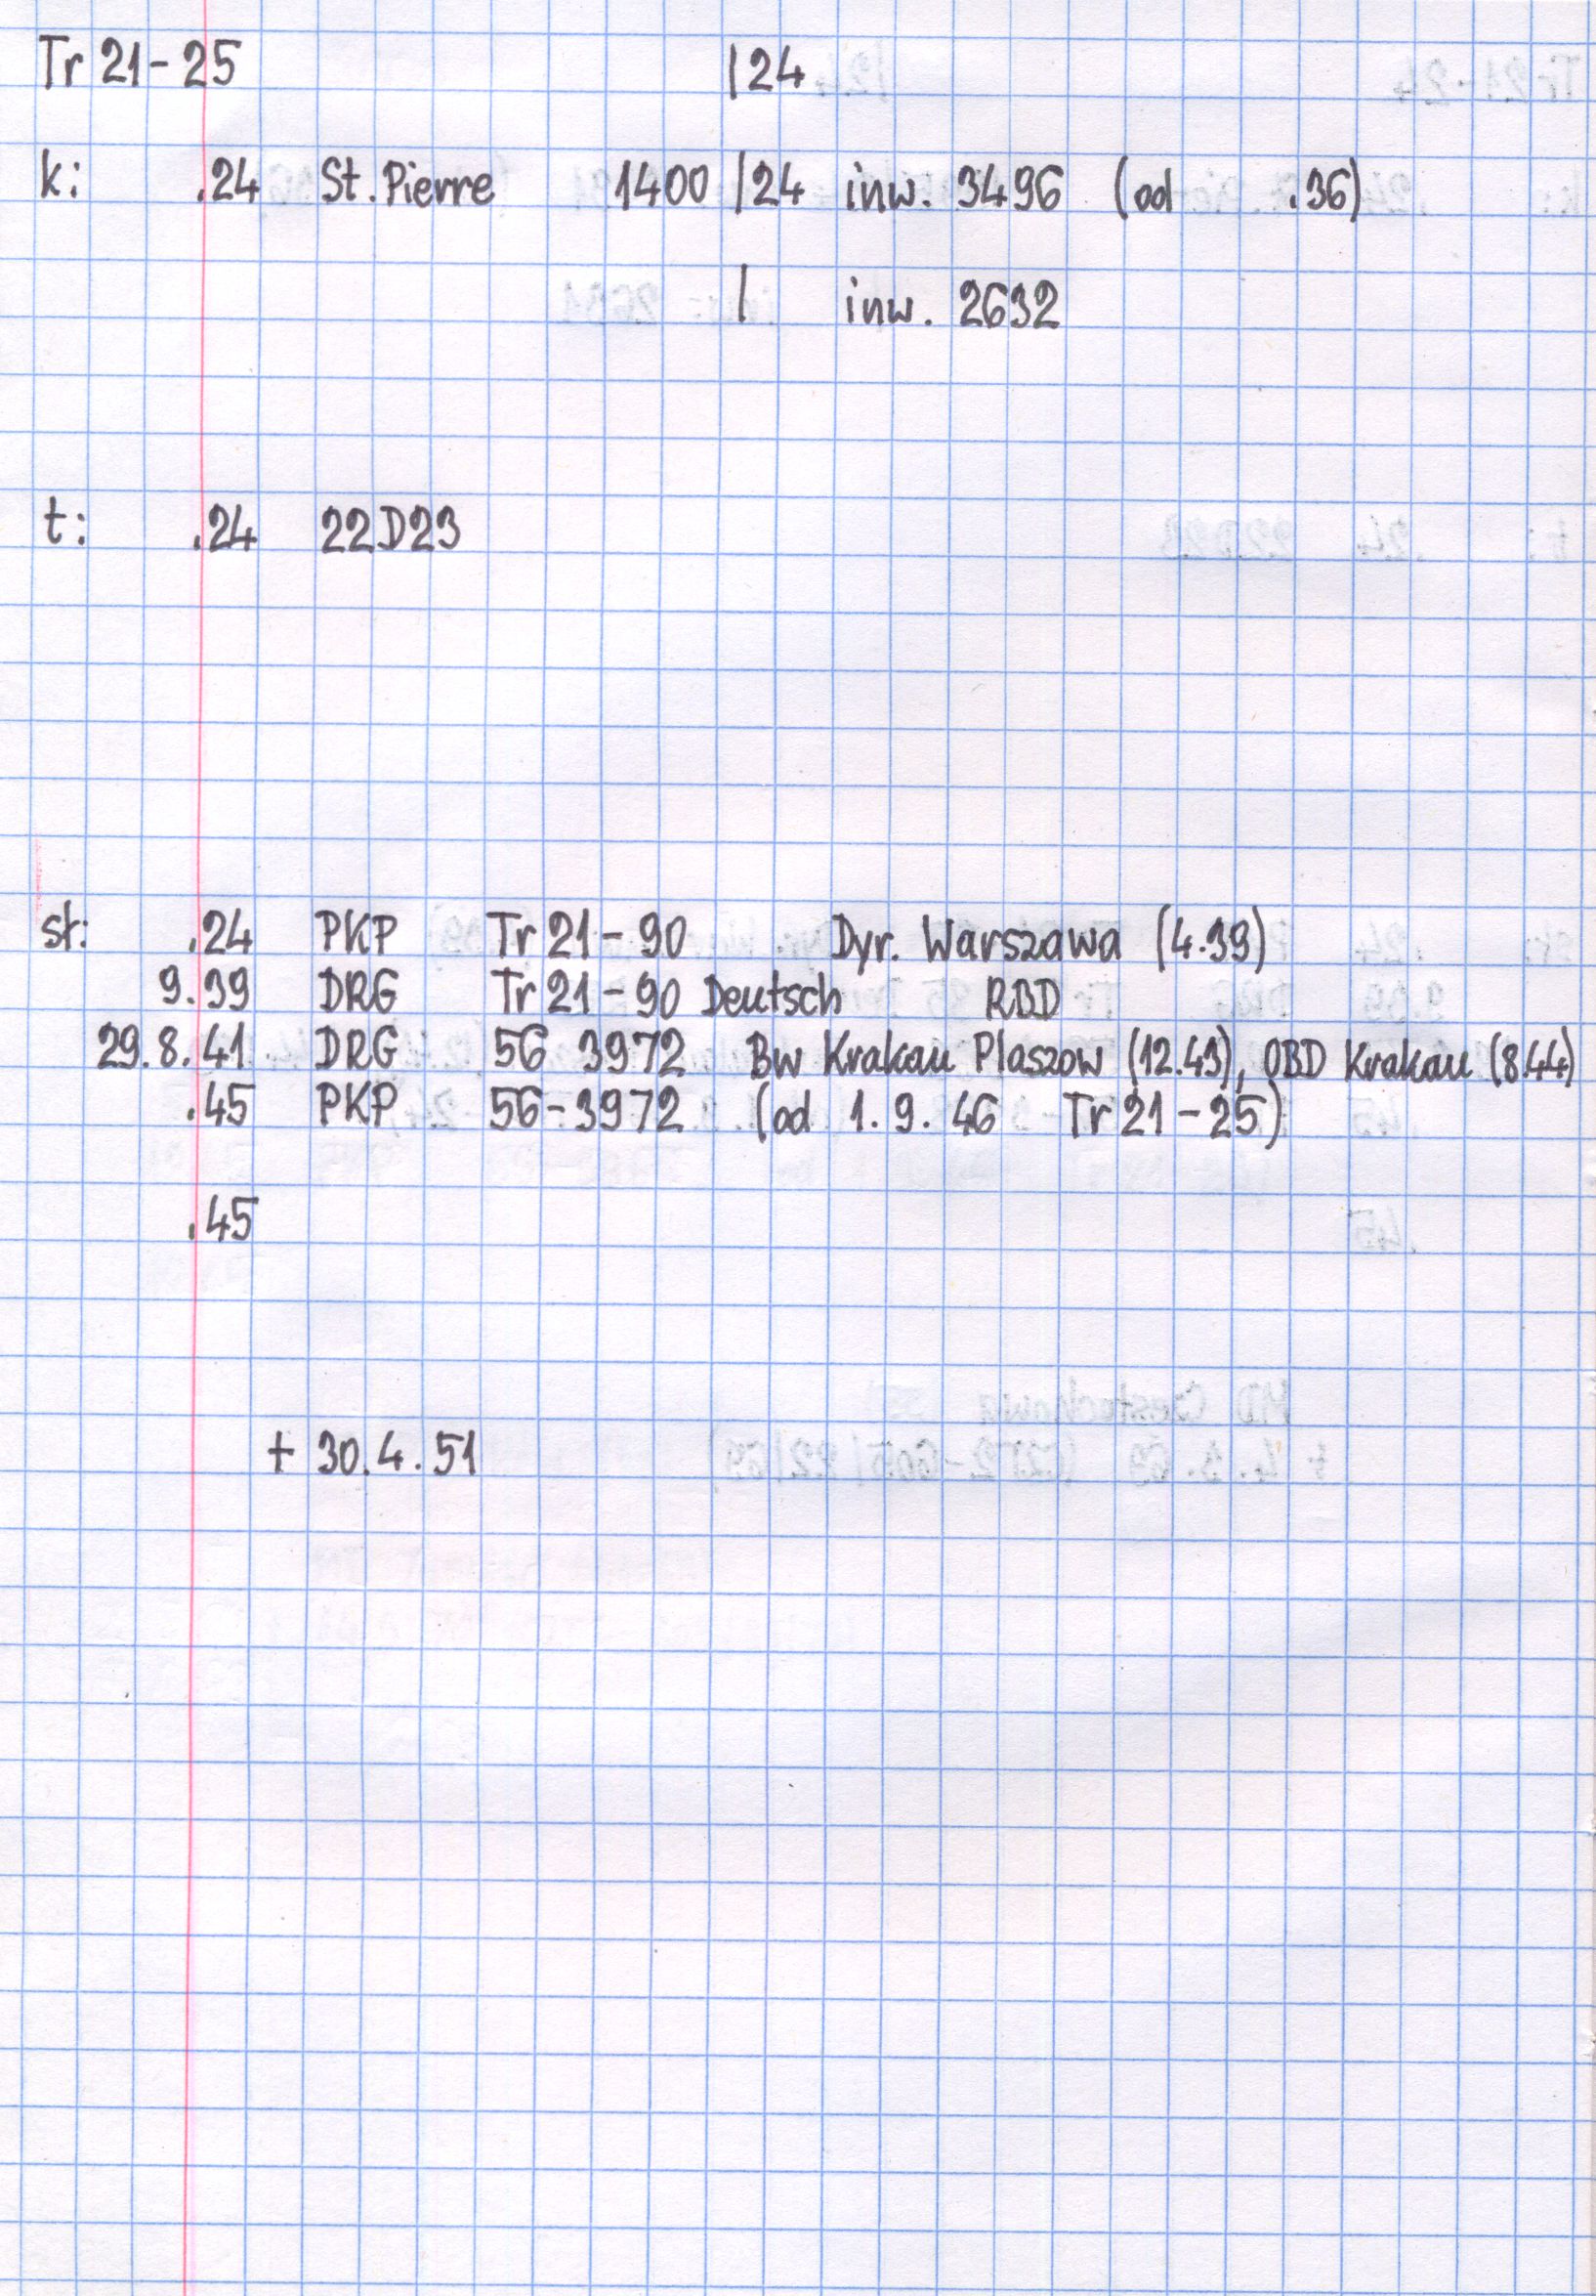 Tr 21-25 /24
k: .24 St. Pierre 1400 /24 inw. 3496 (od .36)
/ inw. 2632
t: .24 22D23
st: .24 PKP Tr 21-90 Dyr. Warszawa (4.39)
9.39 DRG Tr 21-90 Deutsch RBD
29.8.41 DRG 56 3972 Bw Krakau Plaszow (12.43), OBD Krakau (8.44)
.45 PKP 56-3972 (od 1.9.46 Tr 21-25)
.45
+ 30.4.51